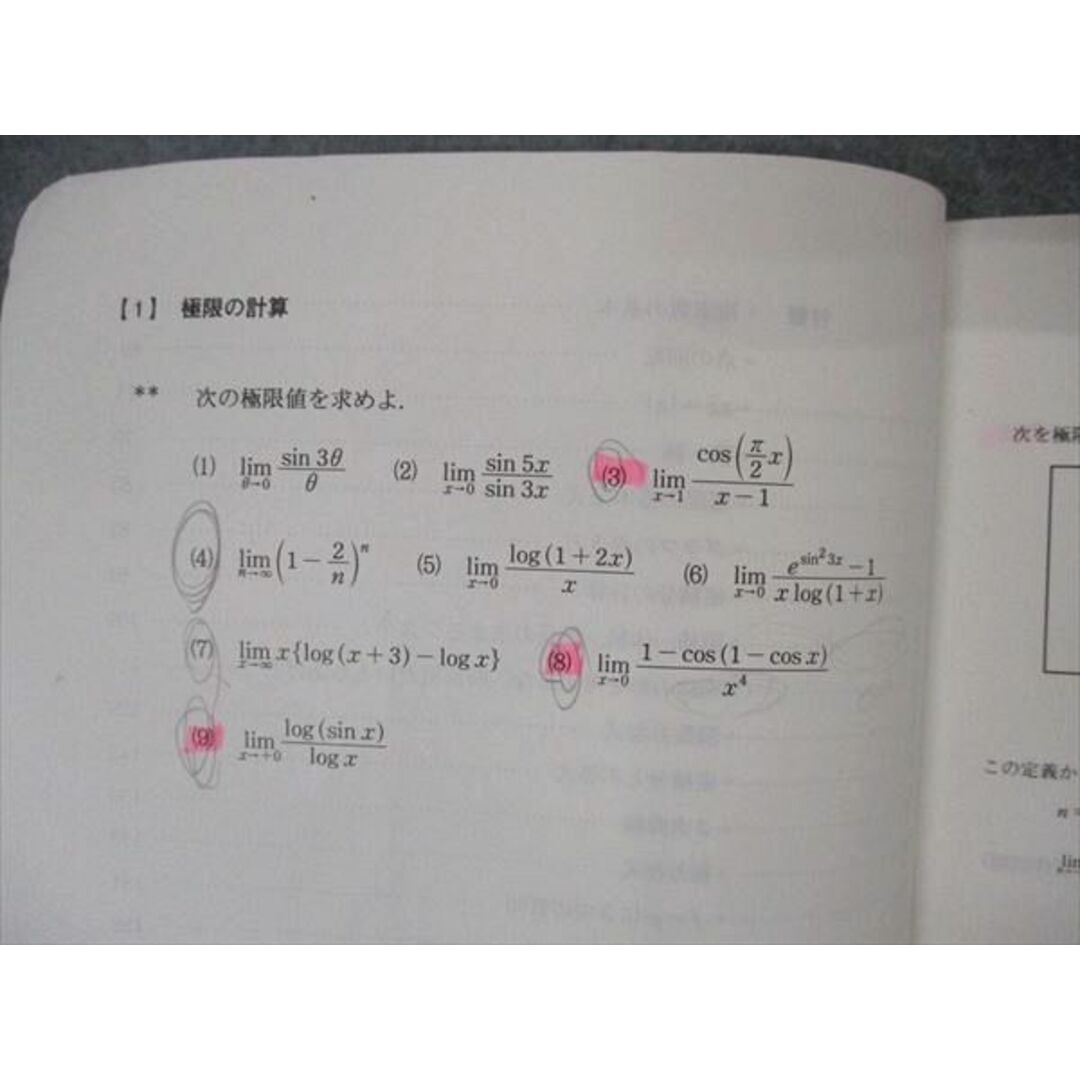 【1】 極限の計算
** 次の極限値を求めよ.
(1) lim_{θ→0} sin 3θ / θ (2) lim_{x→0} sin 5x / sin 3x (3) lim_{x→1} cos(π/2 x) / x−1
(4) lim_{n→∞} (1 − 2/n)^n (5) lim_{x→0} log(1+2x) / x (6) lim_{x→0} e^{sin² 3x} −1 / x log(1+x)
(7) lim_{x→∞} x{log(x+3) − log x} (8) lim_{x→0} 1−cos(1−cos x) / x^4
(9) lim_{x→+0} log(sin x) / log x
次を極限
この定義か
n
lim